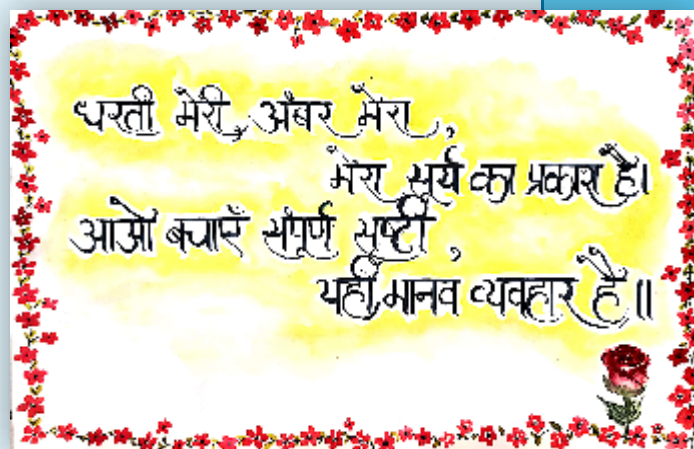 धरती मेरी, अंबर मेरा,
मेरा सूर्य का प्रकाश है।
आओ बचाएँ संपूर्ण सृष्टी,
यही मानव व्यवहार है॥